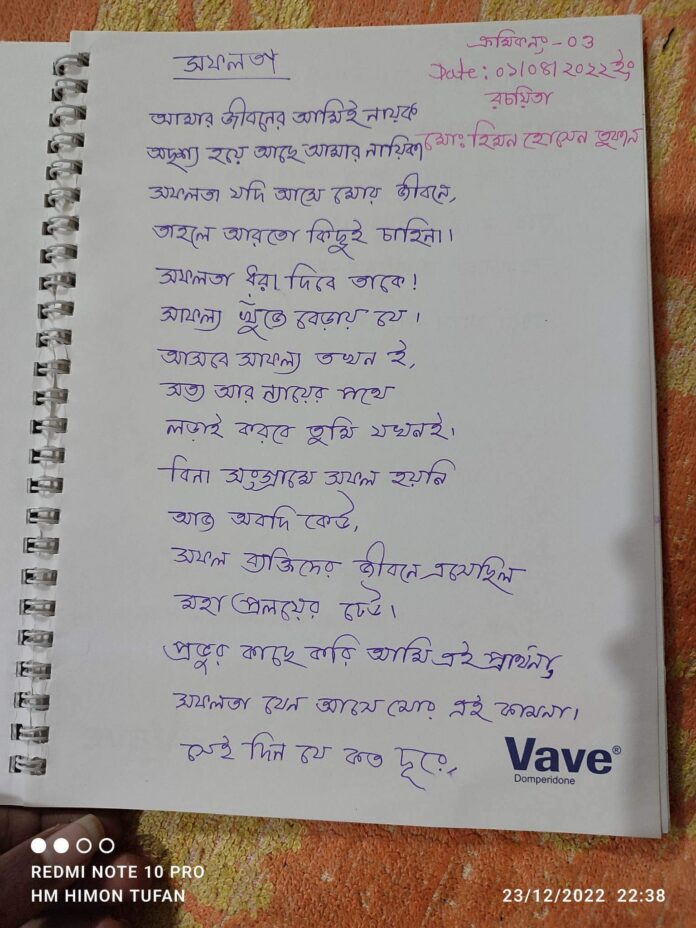 সফলতা
ক্রমিকনং - ০৩
Date : ০১/০৪/২০২২ইং
রচয়িতা
মোঃ হিমন হোসেন তুফান
আমার জীবনের আমিই নায়ক
অদৃশ্য হয়ে আছে আমার নায়িকা
সফলতা যদি আসে মোর জীবনে,
তাহলে আরতো কিছুই চাহিনা।
সফলতা ধরা দিবে তাকে!
সাফল্য খুঁজে বেড়ায় যে।
আসবে সাফল্য তখন ই,
সত্য আর ন্যায়ের পথে
লড়াই করবে তুমি যখনই।
বিনা সংগ্রামে সফল হয়নি
আজ অবদি কেউ,
সফল ব্যক্তিদের জীবনে এসেছিল
মহা প্রলয়ের ঢেউ।
প্রভুর কাছে করি আমি এই প্রার্থনা,
সফলতা যেন আসে মোর এই কামনা।
সেই দিন যে কত দূরে,
Vave®
Domperidone
REDMI NOTE 10 PRO
HM HIMON TUFAN
23/12/2022 22:38